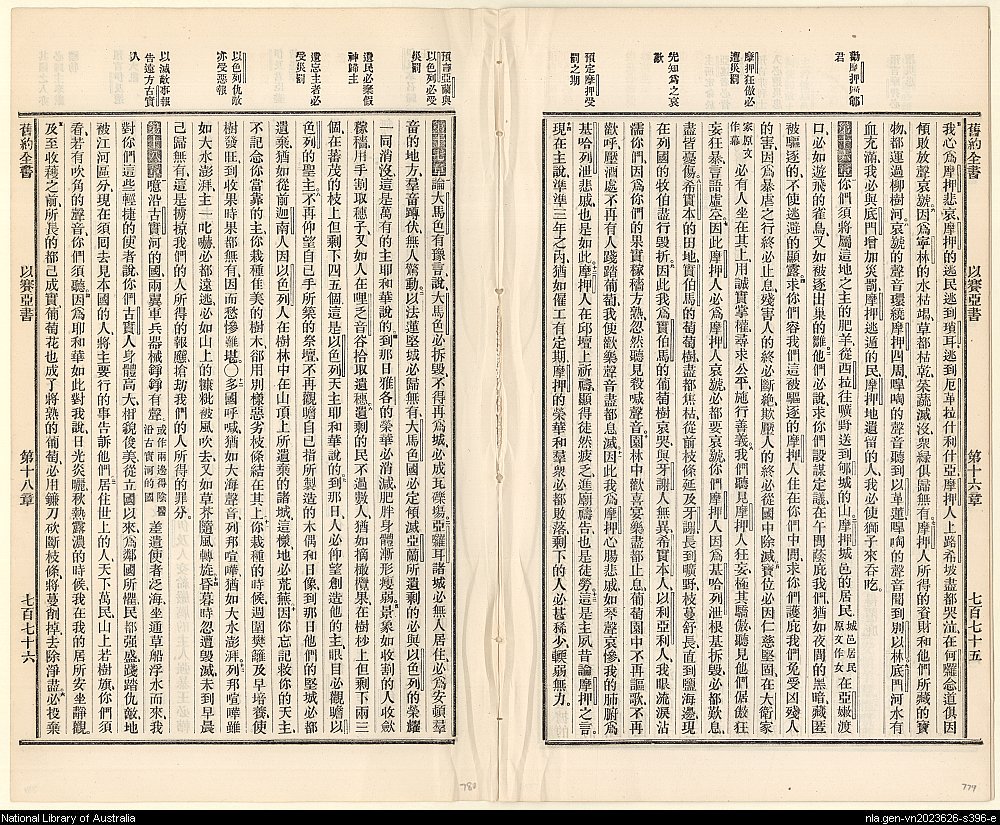 舊約全書 以賽亞書 第十六章 七百七十五
勸摩押歸
君
摩押狂傲必
遭災罰
先知為之哀
歎
預定摩押受
罰之期
我心為摩押悲哀摩押的逃民逃到瑣耳逃到厄革拉什利什亞摩押人上路希坡盡都哭泣在何羅念道俱因
傾敗放聲哀號因為寧林的水枯竭草都枯乾菜蔬滅沒眾綠俱歸無有摩押人所得的貲財和他們所藏的寶
物都運過柳樹河哀號的聲音環繞摩押四周嘷啕的聲音聽到以革蓮嘷啕的聲音聞到別以林底門河水有
血充滿我必與底門增加災罰摩押逃遁的民摩押地遺留的人我必使獅子來吞吃
第十六章你們須將屬這地之主的肥羊從西拉往曠野送到郇城的山摩押城邑的居民城邑居民原文作女在亞嫩渡
口必如遊飛的雀鳥又如被逐出巢的雛他們必說求你們設謀定議在午間蔭庇我們猶如夜間的黑暗藏匿
被驅逐的不使逃避的顯露求你們容我們這被驅逐的摩押人住在你們中間求你們護庇我們免受凶殘人
的害因為暴虐之行終必止息殘害人的終必斷絕欺壓人的終必從國中除滅寶位必因仁慈堅固在大衛家
家原文作幕必有人坐在其上用誠實掌權尋求公平施行善義我們聽見摩押人狂妄極其驕傲聽見他們倨傲狂
妄狂暴言語虛空因此摩押人必為摩押人哀號必都要哀號你們摩押人因為基哈列泄根基拆毀必都歎息
盡皆憂傷希實本的田地實伯馬的葡萄樹盡都焦枯從前枝條延及牙謝長到曠野枝蔓舒長直到鹽海邊現
在列國的牧伯盡行毀折因此我為實伯馬的葡萄樹哀哭與牙謝人無異希實本人以利亞利人我眼流淚沾
濡你們因為你們的果實稼穡方熟忽然聽見殺喊聲音園林中歡喜宴樂盡都止息葡萄園中不再謳歌不再
歡呼壓酒處不再有人踐踏葡萄我使歡樂聲音盡都息滅因此我為摩押心腸悲戚如琴聲哀慘我的肺腑為
基哈列泄悲戚也是如此摩押人在邱壇上祈禱顯得徒然疲乏進廟禱告也是徒勞這是主夙昔論摩押之言
現在主說準準三年之內猶如僱工有定期摩押的榮華和羣眾必都敗落剩下的人必甚稀少輭弱無力
779
預言亞蘭與
以色列必受
災罰
遺民必棄假
神歸主
遺忘主者必
受災罰
以色列仇敵
亦受惡報
以滅敵事報
告遠方古實
人
第十七章論大馬色有豫言說大馬色必拆毀不得再為城必成瓦礫場亞羅耳諸城必無人居住必為安頓羣
畜的地方羣畜蹲伏無人驚動以法蓮堅城必歸無有大馬色國必定傾滅亞蘭所遺剩的必與以色列的榮耀
一同消沒這是萬有的主耶和華說的到那日雅各的榮華必消減肥胖身體漸形瘦弱景象如收割的人收斂
稼穡用手割取穗子又如人在哩乏音谷拾取遺穗剩的民不過數人猶如摘橄欖果在樹杪上但剩下兩三
個在蕃茂的枝上但剩下四五個這是以色列天主耶和華說的到那日人必仰望創造他的主眼目必觀瞻以
色列的聖主不再仰望自己手所築的祭壇不再觀瞻自己指所製造的木偶和日像到那日他們的堅城必都
遺棄猶如從前迦南人因以色列人在樹林中在山頂上所遺棄的諸城這樣地必荒蕪因你忘記救你的天主
不記念你當靠的主你栽種佳美的樹木卻用別樣惡劣枝條結在其上你栽種的時候週圍樊籬及早培養使
樹發旺到收果時果都無有因而愁慘難堪○多國呼喊猶如大海聲音列邦喧嘩猶如大水澎湃列邦喧嘩雖
如大水澎湃主一叱嚇必都遠逃必如山上的糠粃被風吹去又如草芥隨風轉旋昏暮時忽遭毀滅未到早晨
己歸無有這是擄掠我們的人所得的報應搶劫我們的人所得的罪分
第十八章噫沿古實河的國兩翼車兵器械錚錚有聲或作兩邊得除翳沿古實河的國差遣使者泛海坐通草船浮水而來我
對你們這些輕捷的使者說你們古實人身體高大相貌俊美從立國以來為鄰國所懼民都強盛踐踏仇敵地
被江河區分現在須回去見本國的人將主要行的事告訴他們居住世上的人天下萬民山上若樹旗你們須
看若有吹角的聲音你們須聽因為耶和華如此對我說日光炎曬秋熱露濃的時候我在我的居所安坐靜觀
及至收穫之前所長的都己成實葡萄花也成了將熟的葡萄必用鐮刀砍斷枝條將蔓創掉去除淨盡必投棄
舊約全書 以賽亞書 第十八章 七百七十六
780
National Library of Australia
nla.gen-vn2023626-s396-e